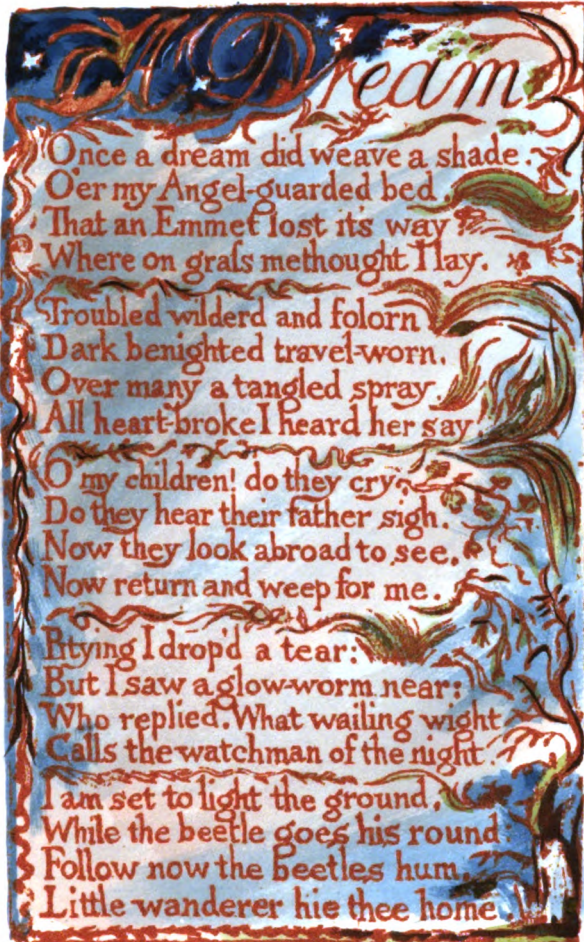 A Dream
Once a dream did weave a shade.
O'er my Angel-guarded bed.
That an Emmet lost it's way
Where on grass methought I lay.
Troubled wilderd and folorn
Dark benighted travel-worn.
Over many a tangled spray.
All heart-broke I heard her say
O my children! do they cry
Do they hear their father sigh.
Now they look abroad to see.
Now return and weep for me.
Pitying I drop'd a tear:
But I saw a glow-worm near:
Who replied. What wailing wight
Calls the watchman of the night.
I am set to light the ground.
While the beetle goes his round
Follow now the beetles hum.
Little wanderer hie thee home.